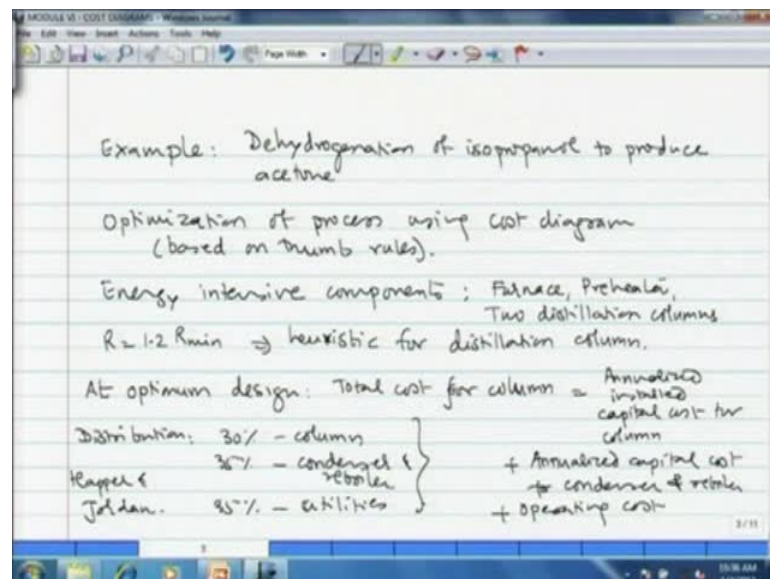 MODULE VI - COST DIAGRAMS - Windows Journal
File Edit View Insert Actions Tools Help
Page Width
Example: Dehydrogenation of isopropanol to produce
acetone
Optimization of process using cost diagram
(based on thumb rules).
Energy intensive components : Furnace, Preheater,
Two distillation columns
R = 1.2 Rmin ⇒ heuristic for distillation column.
At optimum design: Total cost for column = Annualized
installed
capital cost for
column
Distribution: 30% - column
35% - condenser &
reboiler
+ Annualized capital cost
for condenser & reboiler
Happel &
Jordan. 35% - utilities
+ operating cost
3/11
3
11:36 AM